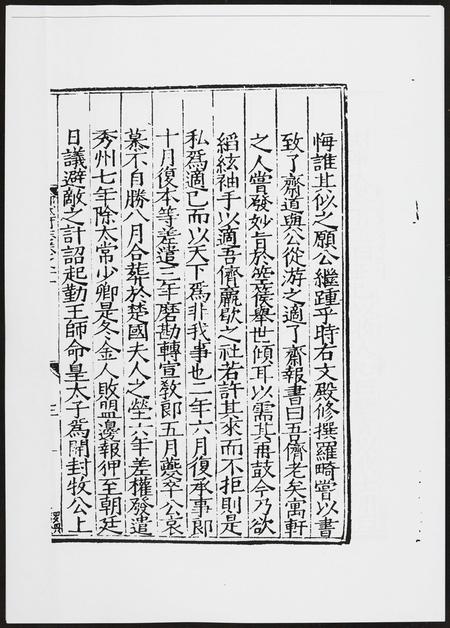 悔誰其似之願公繼踵乎時右文殿修撰羅畸嘗以書
致了齋道與公從游之適了齋報書曰吾儕老矣寓軒
之人嘗發妙音於箜篌舉世傾耳以需其再鼓今乃欲
縚絃袖手以適吾儕羸歇之社若許其求而不拒則是
私爲適己而以天下爲非我事也二年六月復承事郎
十月復本等差遣三年磨勘轉宣敎郎五月燕卒公哀
慕不自勝八月合葬於楚國夫人之塋六年差權發遣
秀州七年除太常少卿是冬金人敗盟邊報狎至朝廷
日議避敵之計詔起勤王師命皇太子爲開封牧公上
三